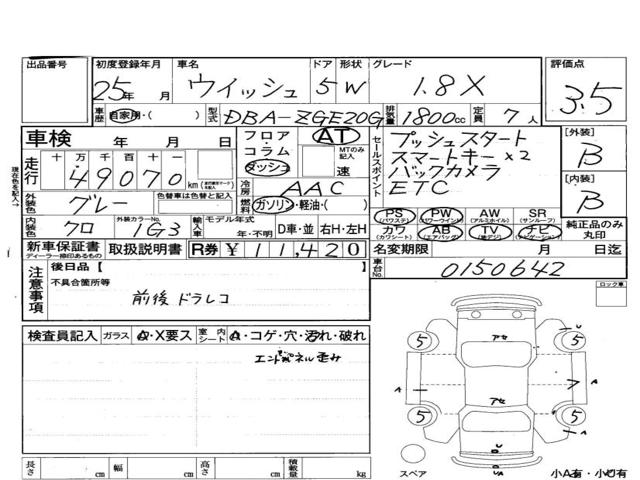 出品番号 初度登録年月 車名 ドア 形状 グレード 評価点
25年 月 ウイッシュ 5 W 1.8X 3.5
車歴 自家用・( ) 型式 DBA-ZGE20G 排気量 1800cc 定員 7人
車検 年 月 日 フロア・コラム・ダッシュ AT MTのみ記入 速
セールスポイント
プッシュスタート
スマートキー×2
バックカメラ
ETC
[外装] B
走行 十 万 千 百 十 一
49070 km
冷房 AAC
[内装] B
外装色 グレー 色替車は色替と記入 燃料 ガソリン・軽油・( )
PS (パワステ) PW (パワーウインド) AW (アルミホイル) SR (サンルーフ)
純正品のみ丸印
内装色 クロ 外装カラーNo. 1G3 輸入車 モデル年式 年・不明 D車・並 右H・左H
カワ (カワシート) AB (エアバッグ) TV (地デジ) ナビ (ナビゲーション)
新車保証書 ディーラー捺印あるもの 取扱説明書 R券 ¥11,420 名変期限 月 日迄
注意事項 後日品【 】 車台No. 0150642
不具合箇所等
前後ドラレコ
ロック車
検査員記入 ガラス A・X要ス 室内シート A・コゲ・穴・汚れ・破れ
エンドパネル歪み
現在色を記入→
U
5 アセ 5
A 7 A
アセ
5 5
A
U
U/A
スペア 小A有・小U有
長さ cm 幅 cm 高さ cm 積載量 kg